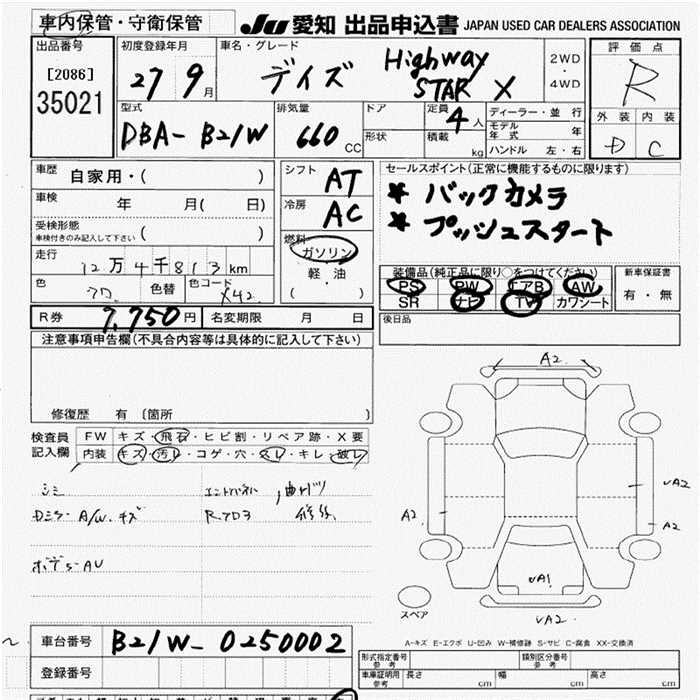 車内保管・守衛保管
JU 愛知 出品申込書 JAPAN USED CAR DEALERS ASSOCIATION
出品番号
[2086]
35021
初度登録年月
27 9月
車名・グレード
デイズ Highway STAR X
2WD
・
4WD
評価点
R
外装 内装
D C
型式
DBA- B21W
排気量
660 CC
ドア
形状
定員
4人
積載 kg
ディーラー・並行
モデル年式 年
ハンドル 左・右
車歴
自家用・( )
車検 年 月( 日)
受検形態
車検付きのみ記入して下さい ( )
走行
12万4千813km
色 色替 色コード
X42
シフト
AT
冷房
AC
燃料
ガソリン
軽・油
( )
セールスポイント(正常に機能するものに限ります)
* バックカメラ
* プッシュスタート
装備品(純正品に限り○をつけてください)
PS PW エアB AW
SR ナビ TV カワシート
新車保証書
有・無
R券 7,750円 名変期限 月 日
後日品
注意事項申告欄(不具合内容等は具体的に記入して下さい)
修復歴 有 〔箇所 〕
検査員
記入欄
FW キズ・飛石・ヒビ割・リペア跡・X要
内装 キズ・汚レ・コゲ・穴・スレ・キレ・破レ
シミ
A/W.キズ
曲ガリ
修理
A2
A2
A2
A2
A1
A2
スペア
A-キズ E-エクボ U-凹み W-補修跡 S-サビ C-腐食 XX-交換済
車台番号 B21W-0250002
登録番号
形式指定番号
参考
類別区分番号
参考
車庫証明用
参考
長さ cm 幅 cm 高さ cm